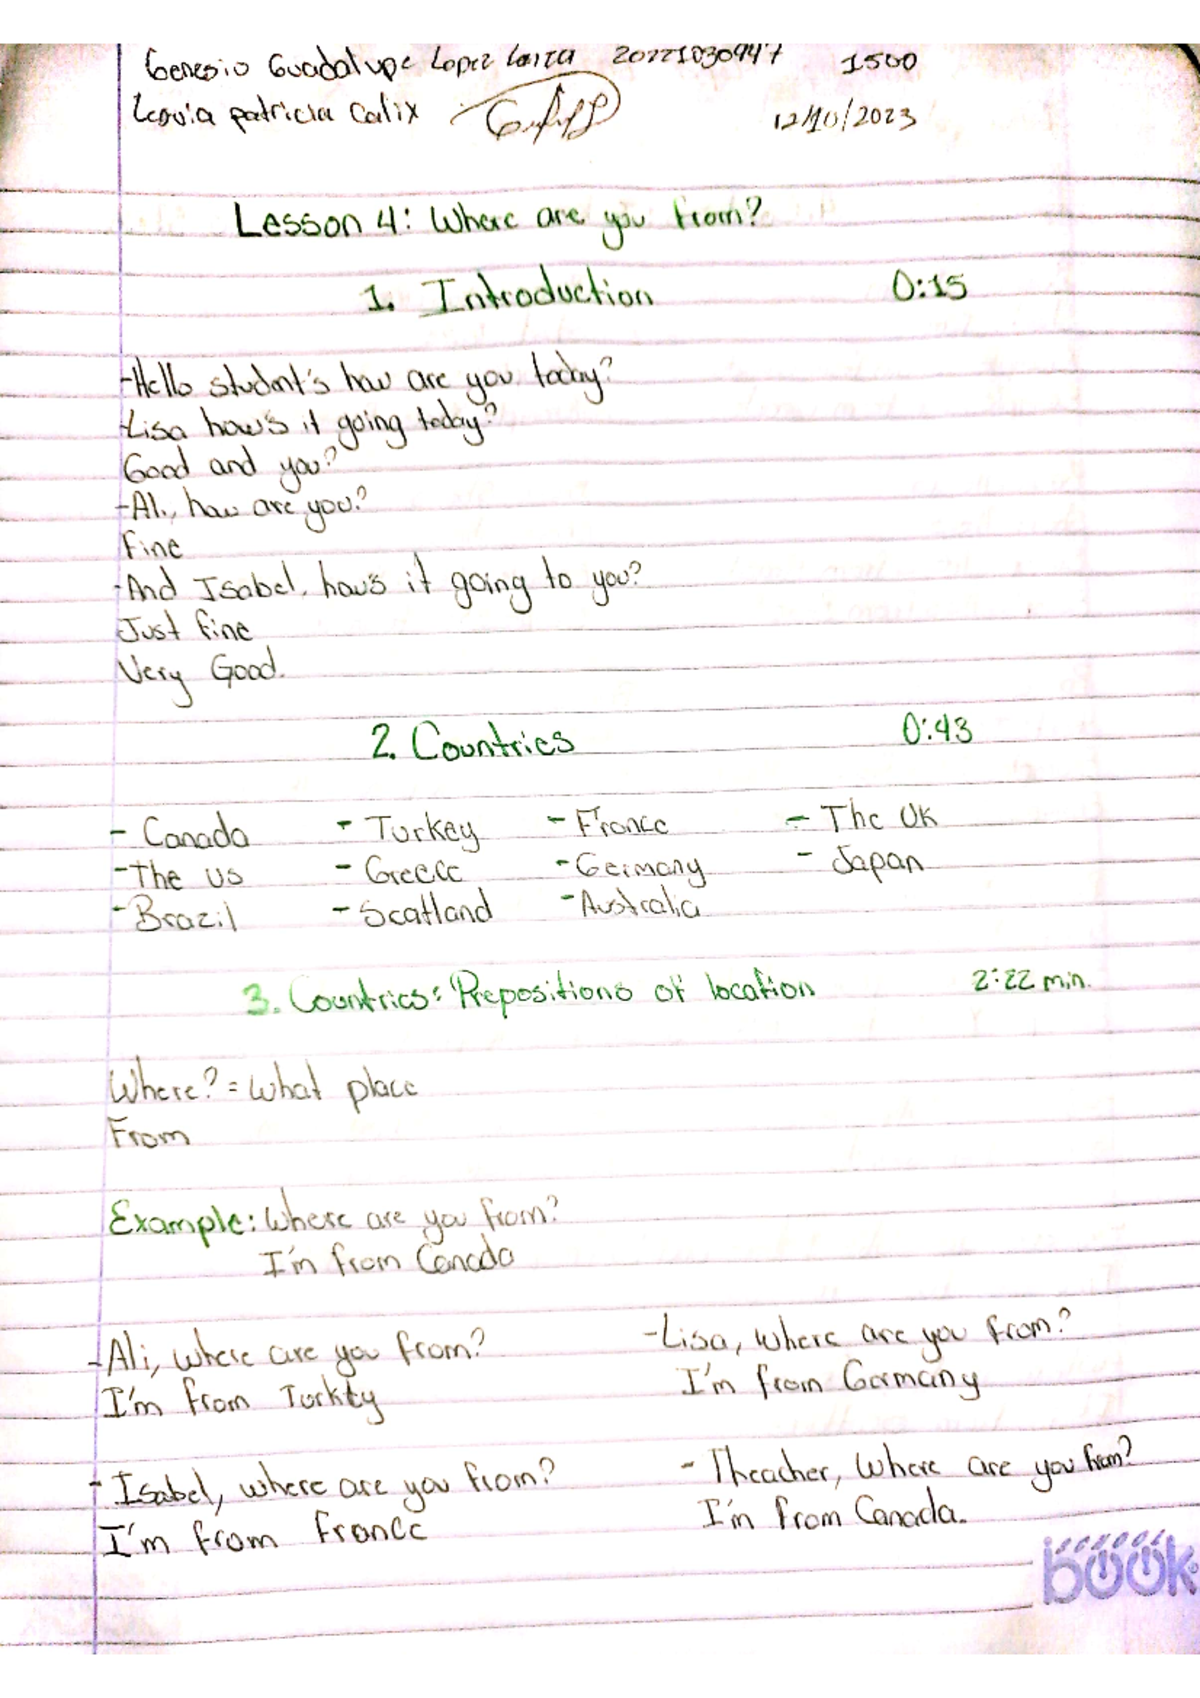 Genesis Guadalupe Lopez 20221030947 1500
patricia Calix 12/10/2023
Lesson 4: Where are you from?
1. Introduction 0:15
-Hello student's how are you today?
-Lisa how's it going today?
Good and you?
-Ali, how are you?
Fine
-And Isabel, how's it going to you?
Just fine
Very Good.
2. Countries 0:43
- Canada - Turkey - France - The UK
-The US - Greece -Germany - Japan
-Brazil -Scatland -Australia
3. Countries: Prepositions of location 2:22 min.
Where? = What place
From
Example: Where are you from?
I'm from Canada
-Ali, where are you from? -Lisa, where are you from?
I'm from Turkty I'm from Germany
- Isabel, where are you from? - Theacher, Where are you from?
I'm from France I'm from Canada.
book